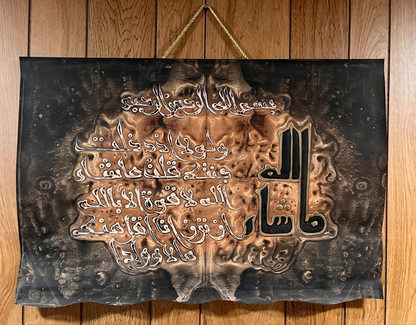 بسم الله الرحمن الرحيم
ولولا إذ دخلت
جنتك قلت ما شاء
الله لا قوة إلا بالله
إن ترن أنا أقل منك
مالا وولدا
ما شاء الله